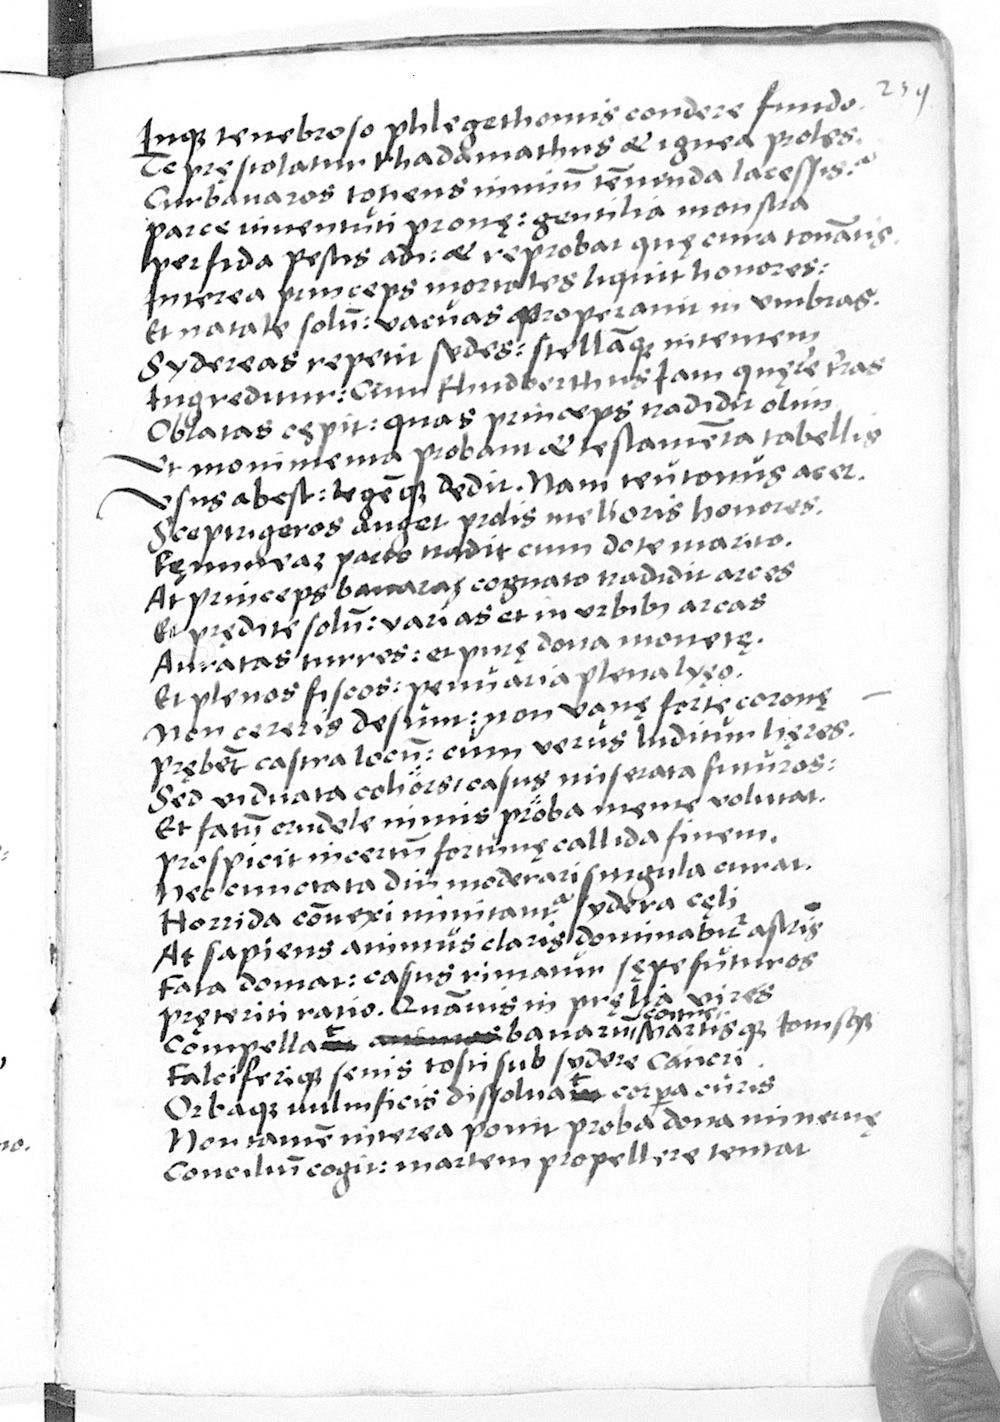 239
Inqȝ tenebroso phlegethontis condere fundo.
Te pręstolatur Rhadamathus & ignea proles.
Cur bauaros totiens nimiū tēnenda lacessis?
parce iuuentuti pronę: gentilia monstra
perfida pestis adi: & reprobat quę cura tonātis.
Interea princeps mortales liquit honores:
Et natale solū: vacuas properauit in vmbras.
Sydereas repetit sedes: stellāqȝ nitentem
Ingreditur: Cum Rudberthus Iam quęre
Oblatas cępit: quas princeps tradidit olim
Vt monimenta probant & testamēta tabellis
Vsus abest: legēqȝ dedit. Nam teutonus acer.
Sceptrigeros auget prolis melioris honores.
Fęmineaȝ pacto tradit cum dote marito.
At princeps bauaraȝ cognato tradidit arces
Et prędite solū: varias et in vrbibȝ arcas
Auratas turres: et purę dona monetę.
Et plenos fiscos: penuaria plena lyęo.
Non cereris desunt: non vanę forte coronę
prębēt castra locū: cum verus luditur hęres.
Sed viduata cohors: casus miserata futuros:
Et fatū crudele nimis proba mente volutat.
prospicit incertū fortunę callida finem.
Nec cunctata diu moderari singula curat.
Horrida cōuexi minitant sydera cęli
At sapiens animus claris dominabitr astris
Fata domat: casus rimatur sępe futuros
pręteriti ratio. Quāuis in pręlia vires
Compellat bauarū Martisqȝ
Falciferiqȝ senis tosti sub sydere Cancri.
Orbaqȝ uulnificis dissoluat corpa curis
Non tamē interea ponit proba dona mineruę
Conciliū cogit: martem propellere tentat